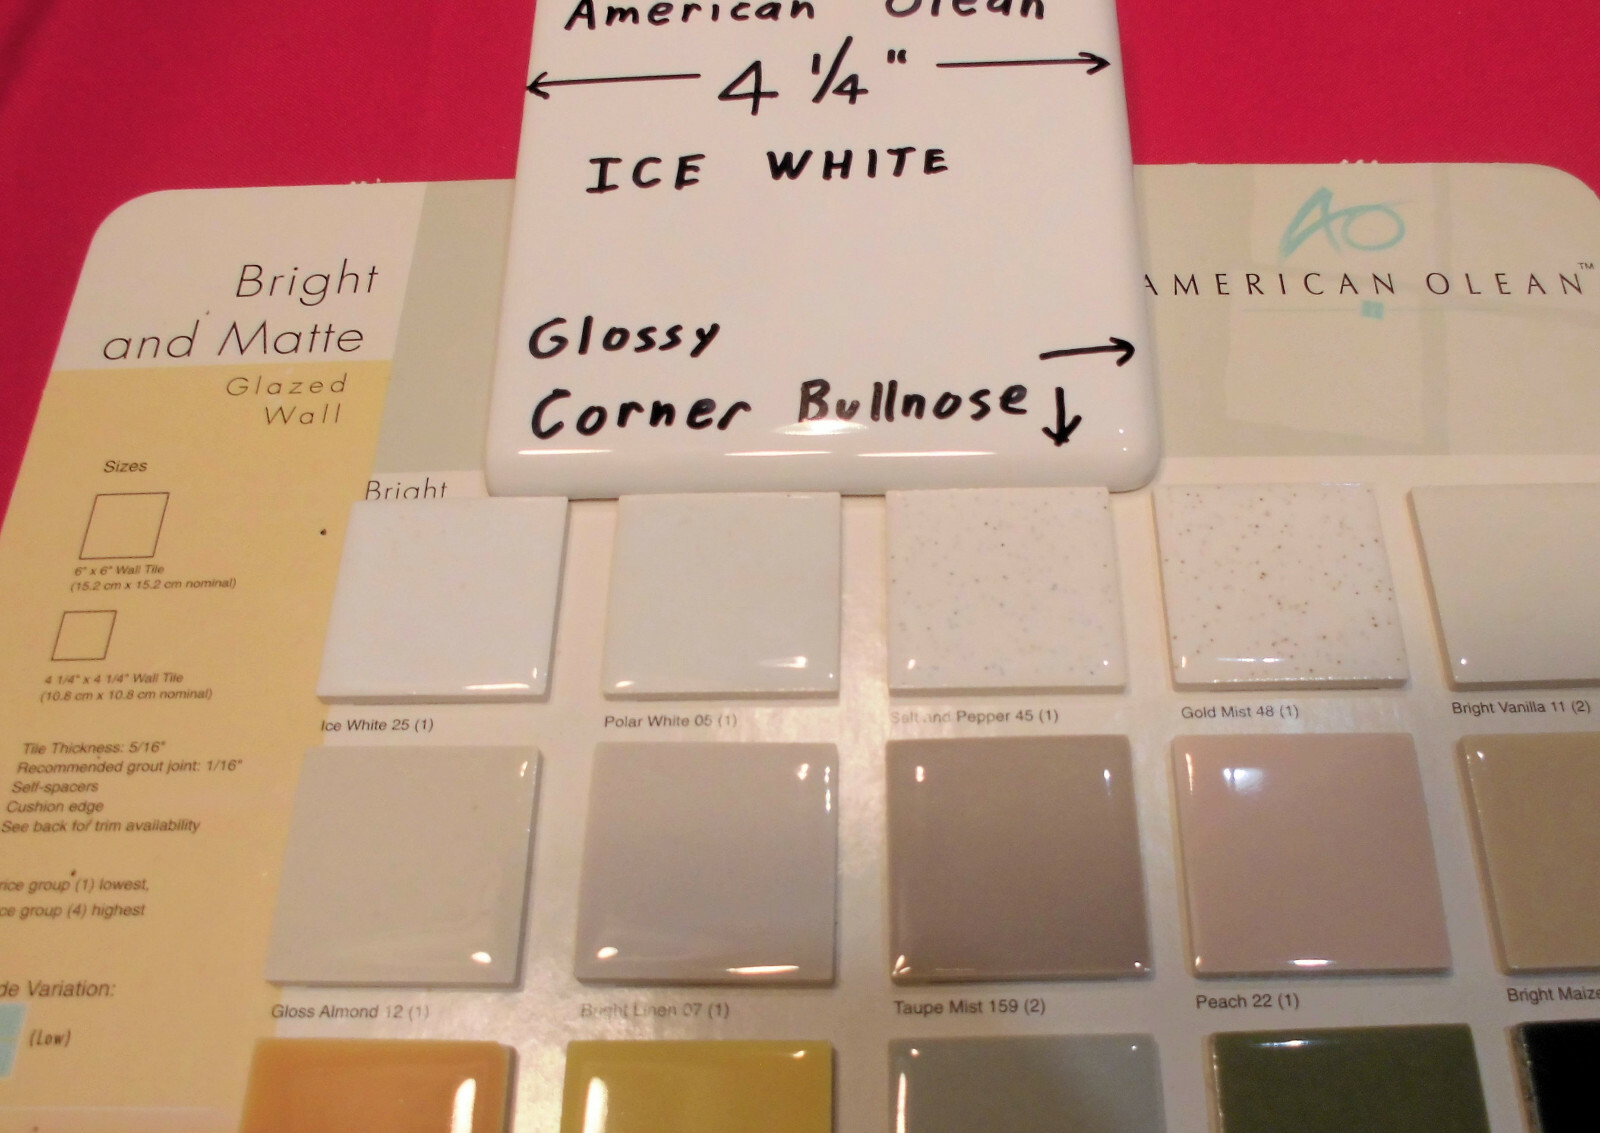 American Olean
4 1/4"
ICE WHITE
Glossy
Corner Bullnose
Bright
and Matte
Glazed
Wall
AO
AMERICAN OLEAN™
Sizes
6" x 6" Wall Tile
(15.2 cm x 15.2 cm nominal)
4 1/4" x 4 1/4" Wall Tile
(10.8 cm x 10.8 cm nominal)
Tile Thickness: 5/16"
Recommended grout joint: 1/16"
Self-spacers
Cushion edge
See back for trim availability
rice group (1) lowest,
ce group (4) highest
de Variation:
(Low)
Bright
Ice White 25 (1)
Polar White 05 (1)
Salt and Pepper 45 (1)
Gold Mist 48 (1)
Bright Vanilla 11 (2)
Gloss Almond 12 (1)
Bright Linen 07 (1)
Taupe Mist 159 (2)
Peach 22 (1)
Bright Maize